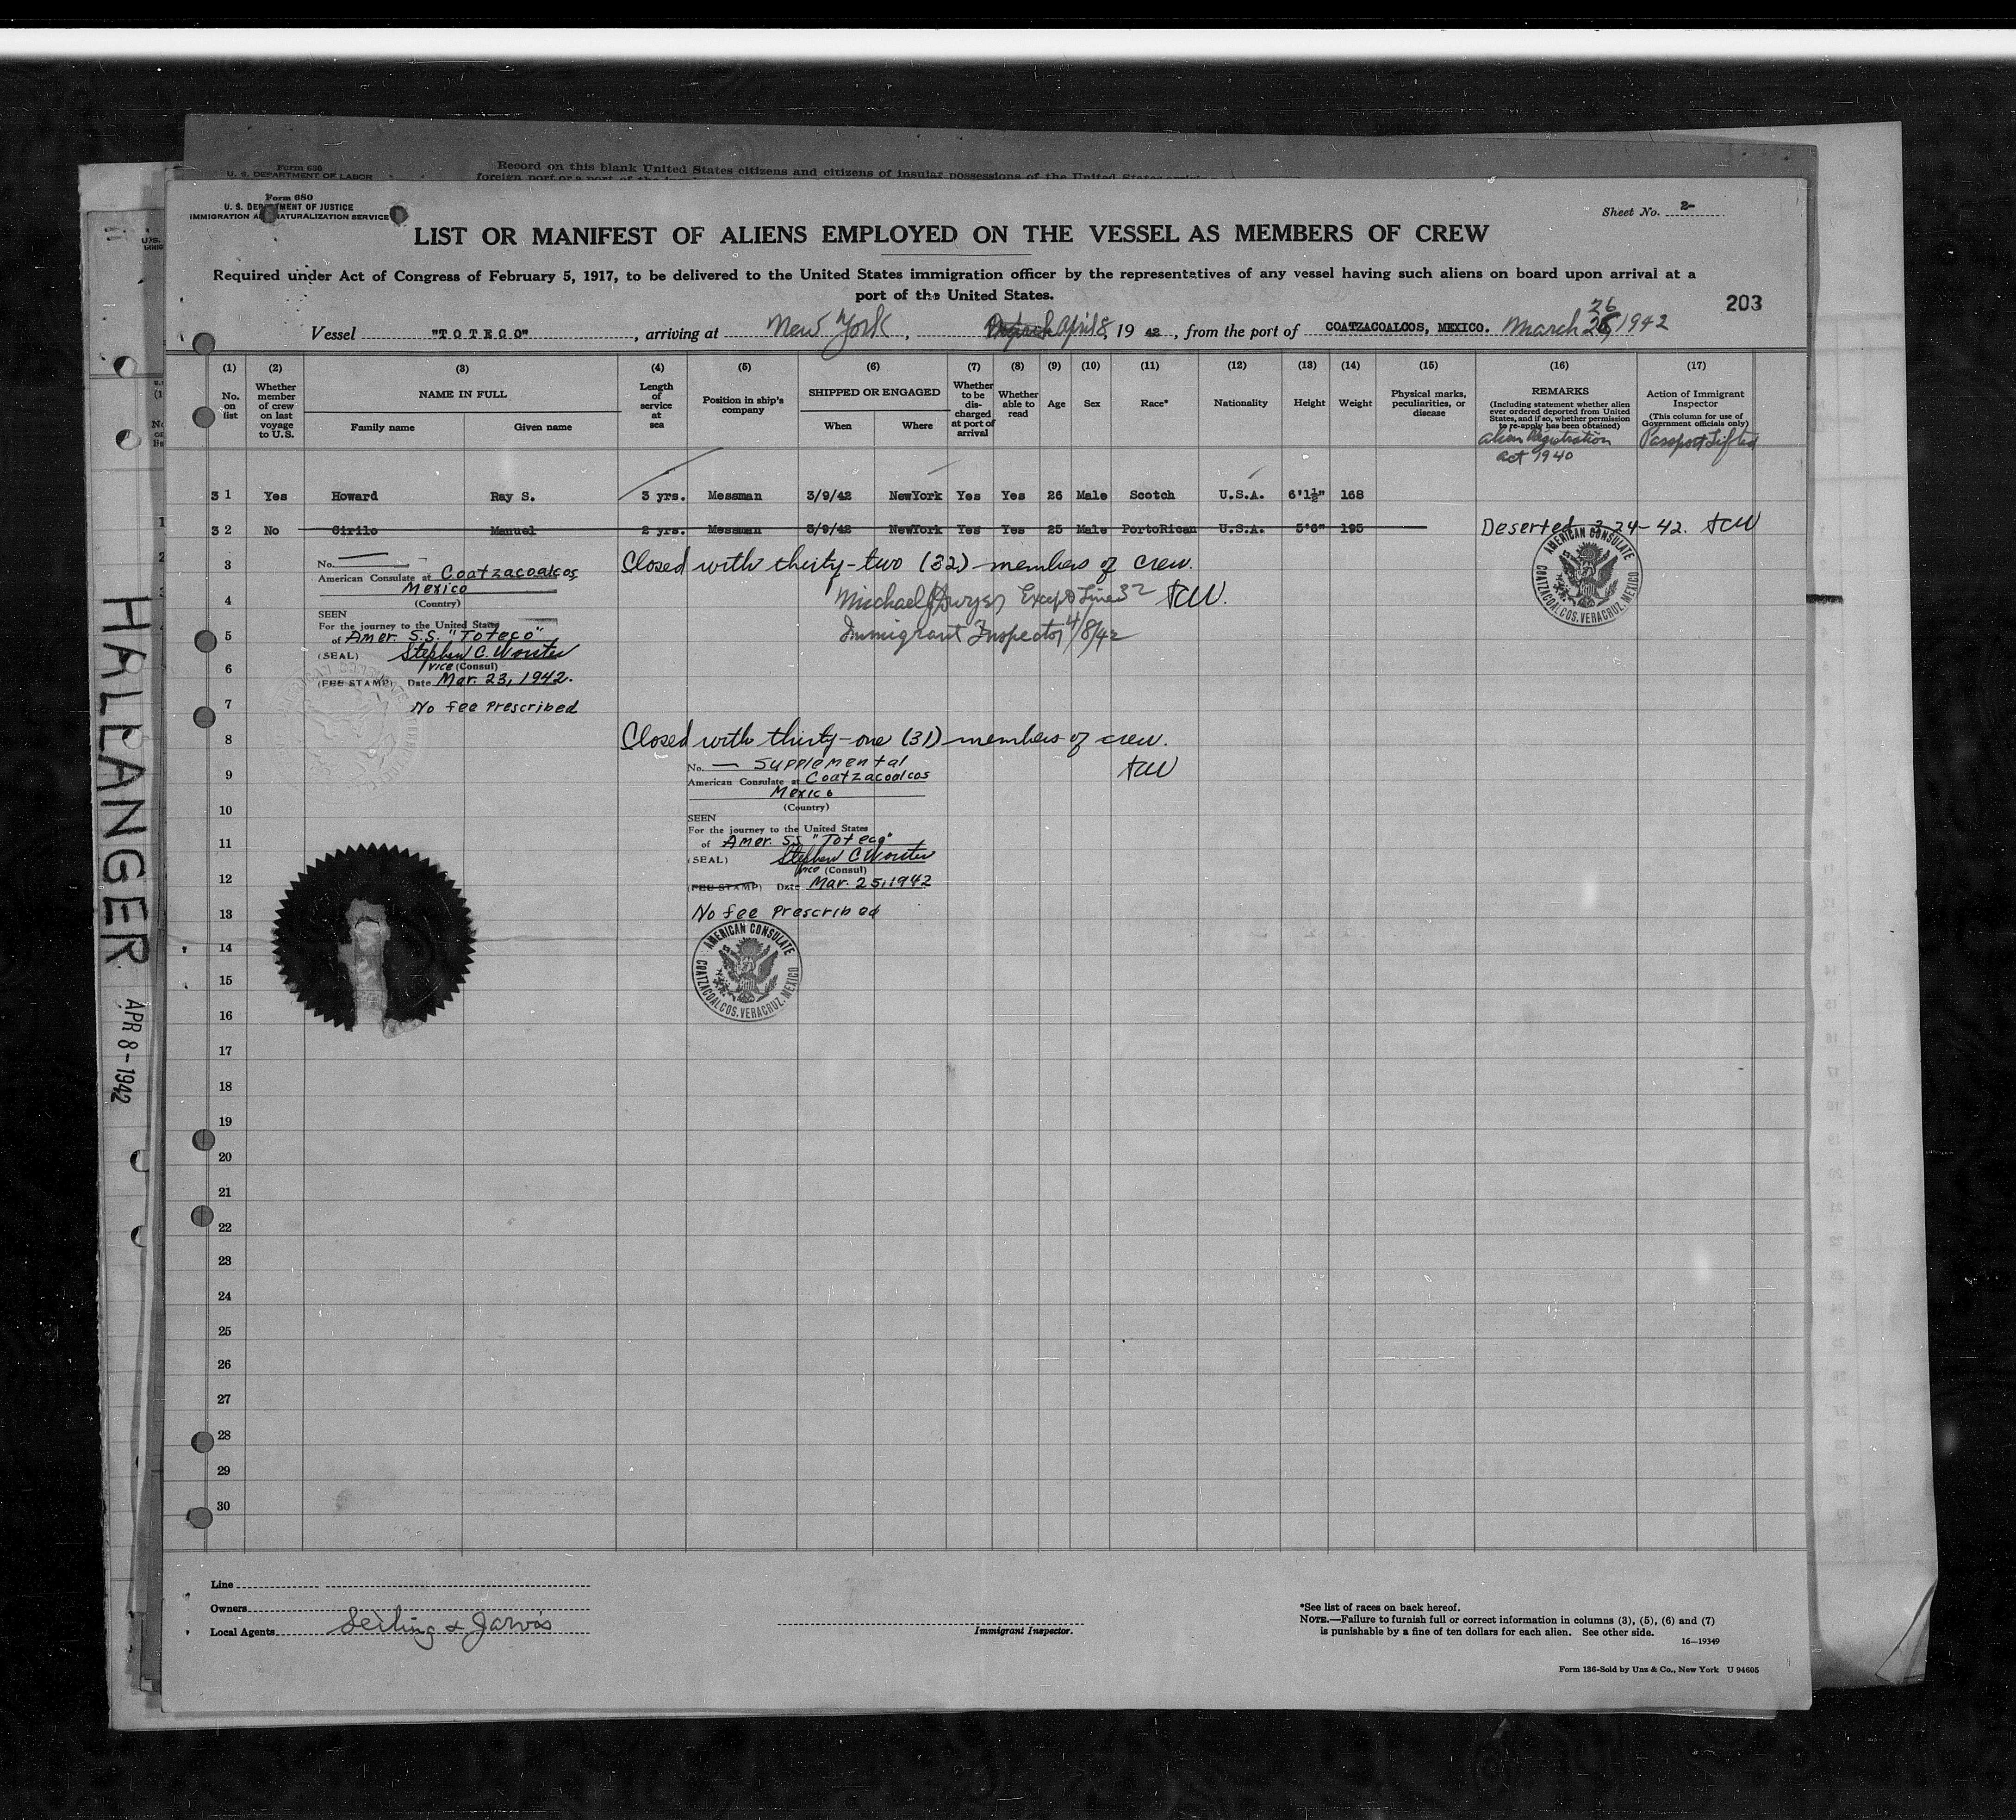 Form 630
U. S. DEPARTMENT OF LABOR
Record on this blank United States citizens and citizens of insular possessions of the United States
Form 680
U. S. DEPARTMENT OF JUSTICE
IMMIGRATION AND NATURALIZATION SERVICE
Sheet No. 2-
LIST OR MANIFEST OF ALIENS EMPLOYED ON THE VESSEL AS MEMBERS OF CREW
Required under Act of Congress of February 5, 1917, to be delivered to the United States immigration officer by the representatives of any vessel having such aliens on board upon arrival at a
port of the United States.
203
Vessel "TOTECO", arriving at New York, April 8, 1942, from the port of COATZACOALCOS, MEXICO. March 26, 1942
(1) (2) (3) (4) (5) (6) (7) (8) (9) (10) (11) (12) (13) (14) (15) (16) (17)
No. on list
Whether member of crew on last voyage to U.S.
NAME IN FULL
Family name Given name
Length of service at sea
Position in ship's company
SHIPPED OR ENGAGED
When Where
Whether to be discharged at port of arrival
Whether able to read
Age
Sex
Race*
Nationality
Height
Weight
Physical marks, peculiarities, or disease
REMARKS
(Including statement whether alien ever ordered deported from United States, and if so, whether permission to re-apply has been obtained)
Alien Registration
act 1940
Action of Immigrant Inspector
(This column for use of Government officials only)
Passport Lifted
31 Yes Howard Ray S. 3 yrs. Messman 3/9/42 NewYork Yes Yes 26 Male Scotch U.S.A. 6'1½" 168
32 No Cirilo Manuel 2 yrs. Messman 3/9/42 NewYork Yes Yes 25 Male PortoRican U.S.A. 5'6" 195 Deserted 3-24-42. SCW
AMERICAN CONSULATE
COATZACOALCOS, VERACRUZ, MEXICO
3
No.
American Consulate at Coatzacoalcos
Mexico
(Country)
SEEN
For the journey to the United States
of Amer. S.S. "Toteco"
(SEAL) Stephen C. Worster
Vice (Consul)
(FEE STAMP) Date Mar. 23, 1942.
No fee Prescribed
Closed with thirty-two (32) members of crew.
Michael Dwyer Except Line 32 SCW.
Immigrant Inspector 4/8/42
4
5
6
7
8
Closed with thirty-one (31) members of crew.
SCW
9
No. — Supplemental
American Consulate at Coatzacoalcos
Mexico
(Country)
SEEN
For the journey to the United States
of Amer. S.S. "Toteco"
(SEAL) Stephen C Worster
Vice (Consul)
(FEE STAMP) Date Mar. 25, 1942
No fee Prescribed
AMERICAN CONSULATE
COATZACOALCOS, VERACRUZ, MEXICO
10
11
12
13
14
15
16
17
18
19
20
21
22
23
24
25
26
27
28
29
30
Line
Owners
Local Agents Seiling & Jarvis
Immigrant Inspector.
*See list of races on back hereof.
NOTE.—Failure to furnish full or correct information in columns (3), (5), (6) and (7)
is punishable by a fine of ten dollars for each alien. See other side.
16—19349
Form 136-Sold by Unz & Co., New York U 94605
HALLANGER
APR 8-1942